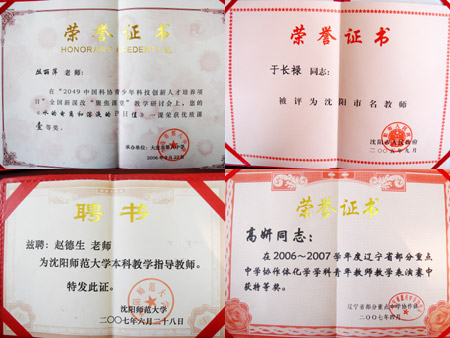 荣誉证书
丛丽萍 老师：
在“2049中国科协青少年科技创新人才培养项
目”全国新课改“聚焦课堂”教学研讨会上，您的
《水的电离和溶液的PH值》一课荣获优质课
壹等奖。
承办单位：
2006年9月22日
荣誉证书
于长禄 同志：
被评为沈阳市名教师
沈阳市人民政府
二〇〇六年九月
聘书
兹聘：赵德生 老师
为沈阳师范大学本科教学指导教师。
特发此证。
沈阳师范大学
二〇〇七年六月二十八日
荣誉证书
高妍同志：
在2006～2007学年度辽宁省部分重点
中学协作体化学学科青年教师教学表演赛中
获特等奖。
辽宁省部分重点中学协作体
二〇〇七年四月